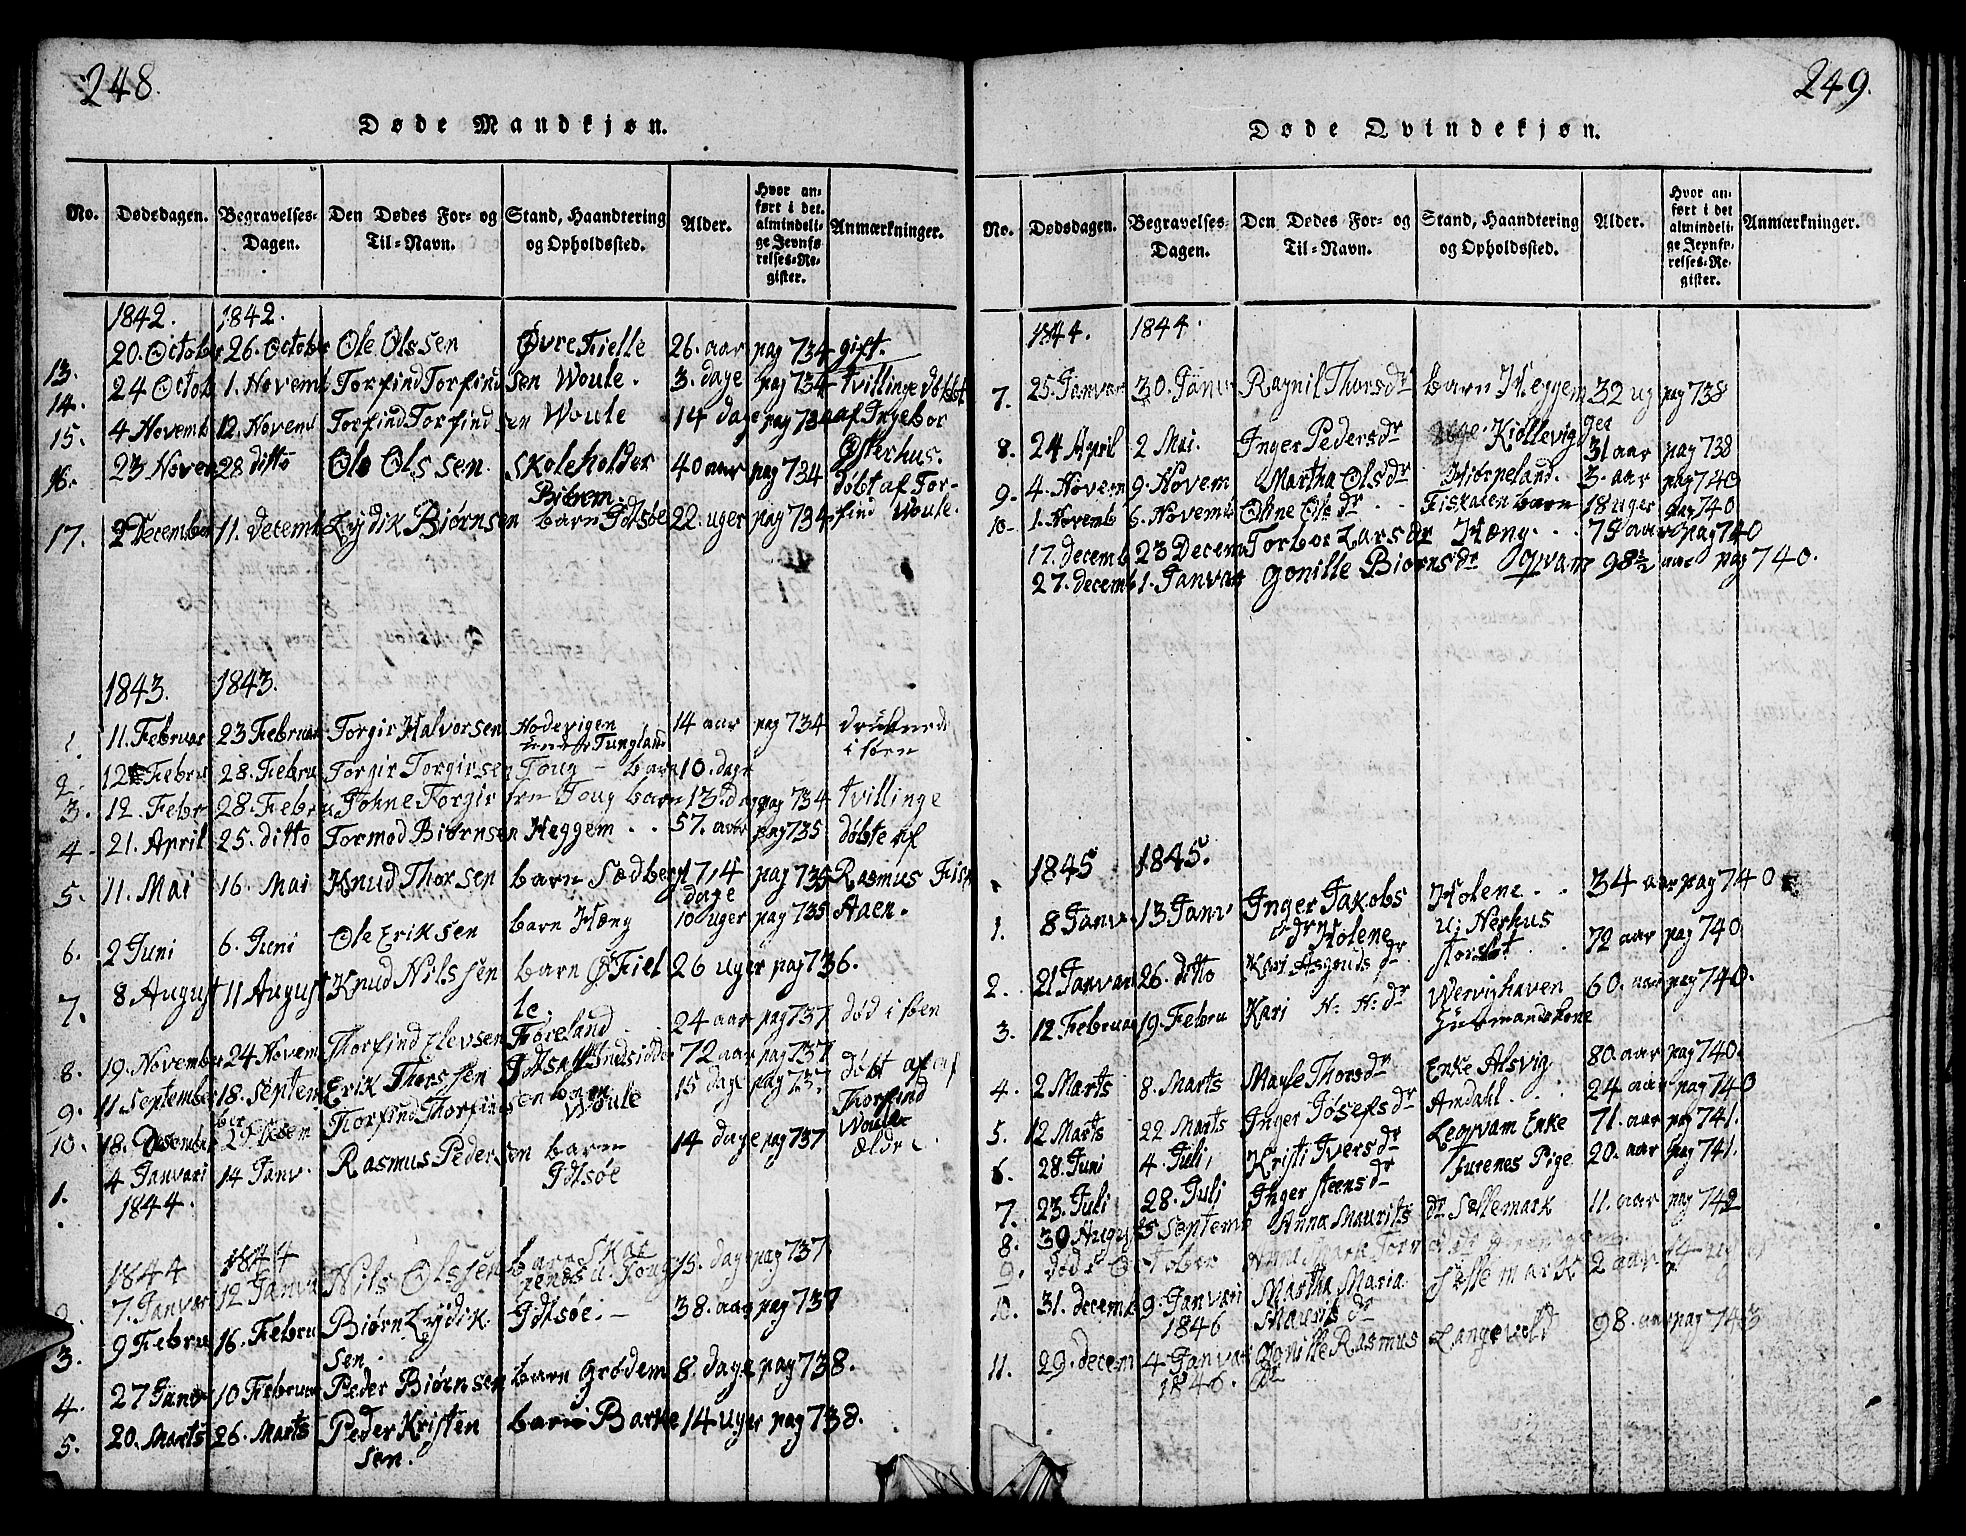 248.
Døde Mandkjøn.
No. Dødsdagen. Begravelses-Dagen. Den Dødes For- og Til-Navn. Stand, Haandtering og Opholdssted. Alder. Hvor anført i det almindelige Jevnførelses-Register. Anmærkninger.
1842. 1842.
13. 20. October 26. October Ole Olssen Øvre Fielle 26. aar pag 734 gift.
14. 24 Octob 1. Novemb Torfind Torfindsen Woule. 3. dage pag 734 tvillinge døbt
15. 4 Novemb 12. Novemb Torfind Torfindsen Woule 14 dage pag 734 af Ingebor
Østerhus.
16. 23 Novem 28 ditto Ole Olssen Skoleholder 40 aar pag 734 døbt af Tor-
find Woule.
17. 2 December 11. decemb Lydik Biørnsen barn Idtsøe 22. uger pag 734
1843. 1843.
1. 11. Februar 23 Februar Torgir Halvorsen Hodevigen 14 aar pag 734 druknede
under Tungland i søen
2. 12 Febru 28. Febru Torgir Torgirsen Toug - barn 10. dage
3. 12. Febr 28. Febru Johne Torgirsen Toug barn 13. dage pag 734 tvillinge
4. 21. April 25. ditto Tormod Biørnsen Heggem . . 57. aar pag 735 døbte af
5. 11. Mai 16. Mai Knud Thorsen barn Sædberg 17/4 pag 734 Rasmus Fisk
dage
6. 2 Juni 6. Juni Ole Eriksen barn Hæng 10 uger pag 735 Aaen.
7. 8 August 11 August Knud Nilssen barn Ø Fiel 26 uger pag 736.
le.
8. 19. November 24 Novem Thorfind Elevsen Føreland 24 aar pag 737 død i søen
9. 11 September 18. Septem Erik Thorssen Idtsøe Indsidder 72 aar pag 737
ber
10. 18. Desember Thorfind Thorfindsen barn Woule 15 dage pag 737 døbt af
Thorfind
Woule
ældre
1. 4 Januari 14 Janv. Rasmus Pedersen barn 14 dage pag 737
1844. Idtsøe
1844 1844
2. 7. Januar 12 Janua Nils Olssen barn 15. dage pag 737
u. Toug
3. 9 Febru 16. Febru Biørn Lydik Idtsøe. - 38. aar pag 737
sen.
4. 27 Janu 10 Februar Peder Biørnsen barn Grødem 8. dage pag 738.
5. 20. Marts 26. Marts Peder Kristen barn Barke 14 uger pag 738.
sen.
249.
Døde Qvindekjøn.
No. Dødsdagen. Begravelses-Dagen. Den Dødes For- og Til-Navn. Stand, Haandtering og Opholdssted. Alder. Hvor anført i det almindelige Jevnførelses-Register. Anmærkninger.
1844. 1844.
7. 25. Januar 30. Janu Ragnil Thorsdr barn Heggem 32 ug pag 738
8. 24 April 2 Mai. Inger Pedersdr Kidllevig 31 aar pag 738
9. 4. Novem 9. Novem Martha Olsdr Hiørpeland. 3. aar pag 740
10. 1. Novemb 6. Novemb Oline Olsdr . . Fiskaaen barn 18 uger pag 740
17. decemb 23 Decemb Torbor Larsdr Hæng. . . 78 aar pag 740
27. decemb 1. Januar Gonille Biørnsdr Løqvam 98½ aar pag 740.
1845 1845.
1. 8 Janv 13 Janv Inger Jakobs Holene . . 34 aar pag 740
drn Holene u. Nerhus
2. 21 Januar 26. ditto Kari Asgouds dr storslot . 72 aar pag 740
3. 12 Februar 19. Febru Kari N: N: dr Wervighaven 60. aar pag 740.
Huusmandskone
4. 2 Marts 8. Marts Mayle Thorsdr Enke Alsvig 80. aar pag 740.
5. 12 Marts 22 Marts Inger Josefs dr Amdahl . . 24 aar pag 740
6. 28. Juni 4. Juli, Kristi Iversdr Leqvam Enke 71. aar pag 741.
7. 23. Juli 28. Juli Inger steensdr Furenes Pige 20. aar pag 741.
8. 30 August 5 Septemb Anna Mauritsdr Sellemark 11. aar pag 742
9. død
10. 31. decemb 9. Januari Martha Maria Sellemark 2 aar
1846 Mauritsdr
11. 29. decem 4 Januar Gonille Rasmus Langevold 98. aar pag 743
1846. dr